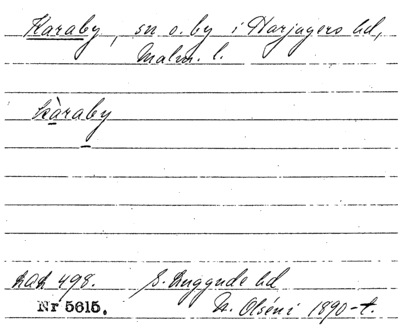 Karaby, sn o. by i Harjagers hd,
Malm. l.
kàraby
498. S. Luggude hd
Nr 5615. N. Olséni 1890-t.